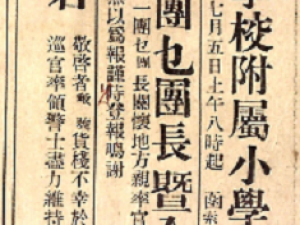 學校附屬小學
七月五日上午八時起
團乜團長暨
一團乜團長關懷地方親率官
無以爲報謹待登報鳴謝
敬啓者 貨棧不幸於
巡官率領警士盡力維持